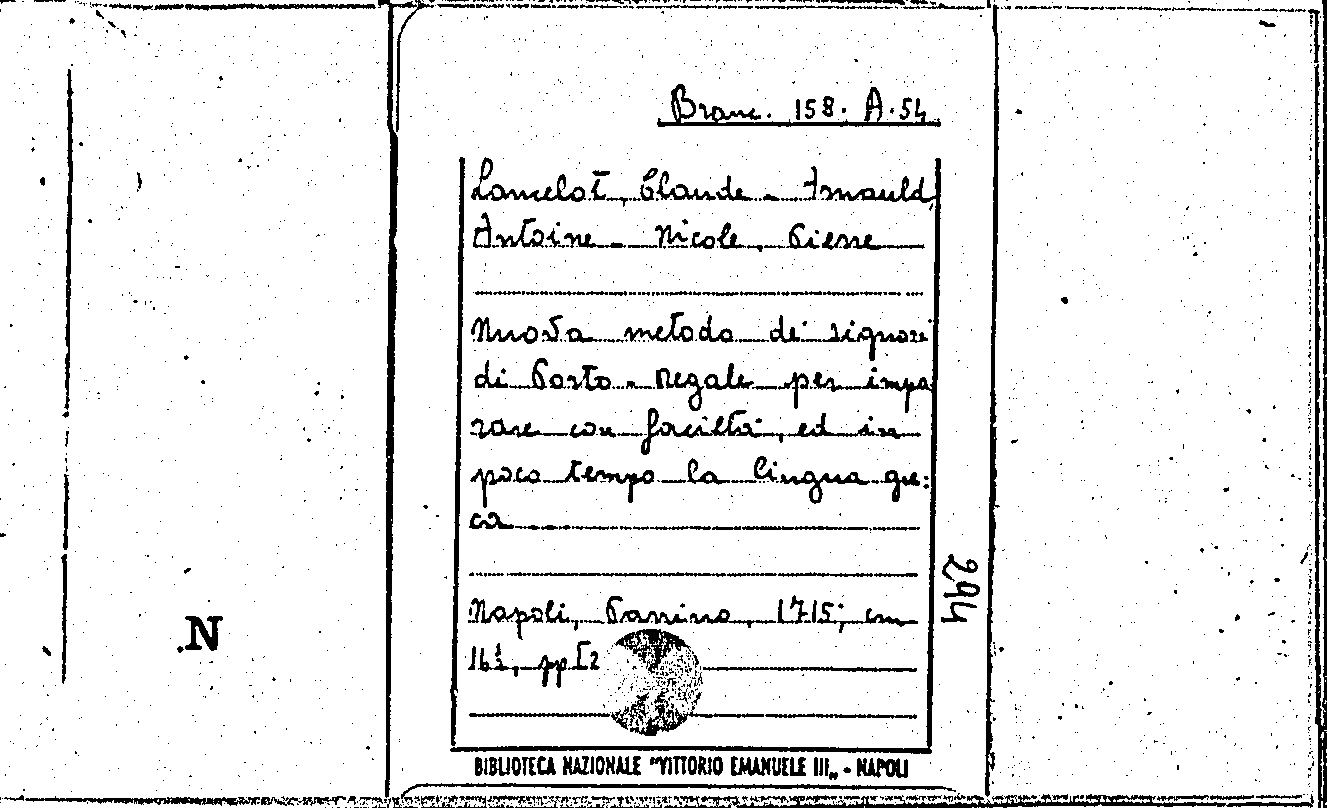 Branc. 158. A.54
Lancelot, Claude - Arnauld,
Antoine - Nicole, Pierre
Nuova metodo de' signori
di Porto-Regale per impa
rare con facilta', ed in
poco tempo la lingua gre:
ca
Napoli, Parrino, 1715; cm
16½, pp [2
294
N
BIBLIOTECA NAZIONALE "VITTORIO EMANUELE III„ - NAPOLI